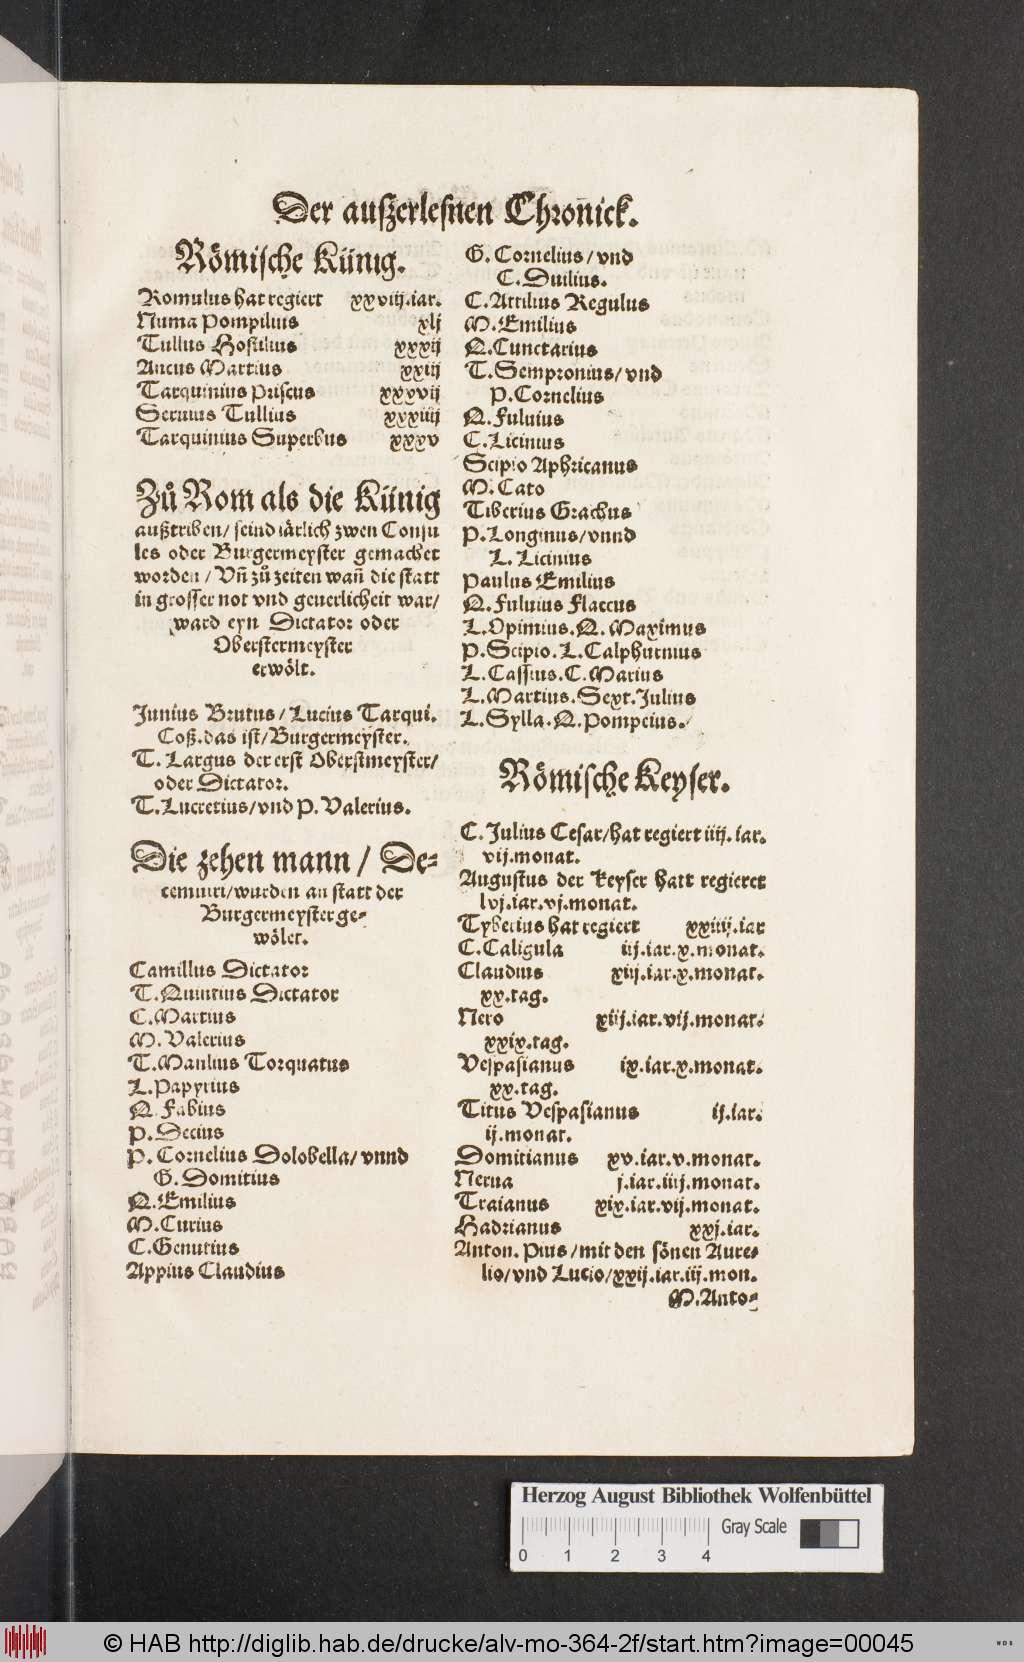 Der außerlesnen Chron̄ick.
Römische Künig.
Romulus hat regiert xxxviij.iar.
Numa Pompilius xlj
Tullus Hostilius xxxij
Ancus Martius xxiij
Tarquinius Priscus xxxvij
Seruius Tullius xxxiiij
Tarquinius Superbus xxxv
Zů Rom als die Künig
außtriben/ seind iärlich zwen Consu
les oder Burgermeyster gemachet
worden/ Vn̄ zů zeiten wan̄ die statt
in grosser not vnd geuerlicheit war/
ward eyn Dictator oder
Oberstermeyster
erwölt.
Junius Brutus/ Lucius Tarqui.
Coß.das ist/ Burgermeyster.
T. Largus der erst Oberstmeyster/
oder Dictator.
T. Lucretius/ vnd P. Valerius.
Die zehen mann/ De-
cemuiri/ wurden an statt der
Burgermeyster ge-
wölet.
Camillus Dictator
T. Quintius Dictator
C. Martius
M. Valerius
T. Manlius Torquatus
L. Papyrius
Q. Fabius
P. Decius
P. Cornelius Dolobella/ vnnd
G. Domitius
Q. Emilius
M. Curius
C. Genutius
Appius Claudius
G. Cornelius/ vnd
C. Duilius.
C. Attilius Regulus
M. Emilius
Q. Cunctarius
T. Sempronius/ vnd
P. Cornelius
Q. Fuluius
C. Licinius
Scipio Aphricanus
M. Cato
Tiberius Grachus
P. Longinus/ vnnd
L. Licinius
Paulus Emilius
Q. Fuluius Flaccus
L. Opimius. Q. Maximus
P. Scipio. L. Calphurnius
L. Cassius. C. Marius
L. Martius. Sext. Julius
L. Sylla. Q. Pompeius.
Römische Keyser.
C. Julius Cesar/ hat regiert iiij.iar.
vij.monat.
Augustus der keyser hatt regieret
lvj.iar.vj.monat.
Tyberius hat regiert xxiiij.iar
C. Caligula iij.iar.x.monat.
Claudius xiij.iar.x.monat.
xx.tag.
Nero xiij.iar.vij.monat.
xxix.tag.
Vespasianus ix.iar.x.monat.
xx.tag.
Titus Vespasianus ij.iar.
ij.monat.
Domitianus xv.iar.v.monat.
Nerua j.iar.iiij.monat.
Traianus xix.iar.vij.monat.
Hadrianus xxj.iar.
Anton. Pius/ mit den sönen Aure-
lio/ vnd Lucio/ xxij.iar.iij.mon.
M. Anto-
Herzog August Bibliothek Wolfenbüttel
Gray Scale
0 1 2 3 4
© HAB http://diglib.hab.de/drucke/alv-mo-364-2f/start.htm?image=00045